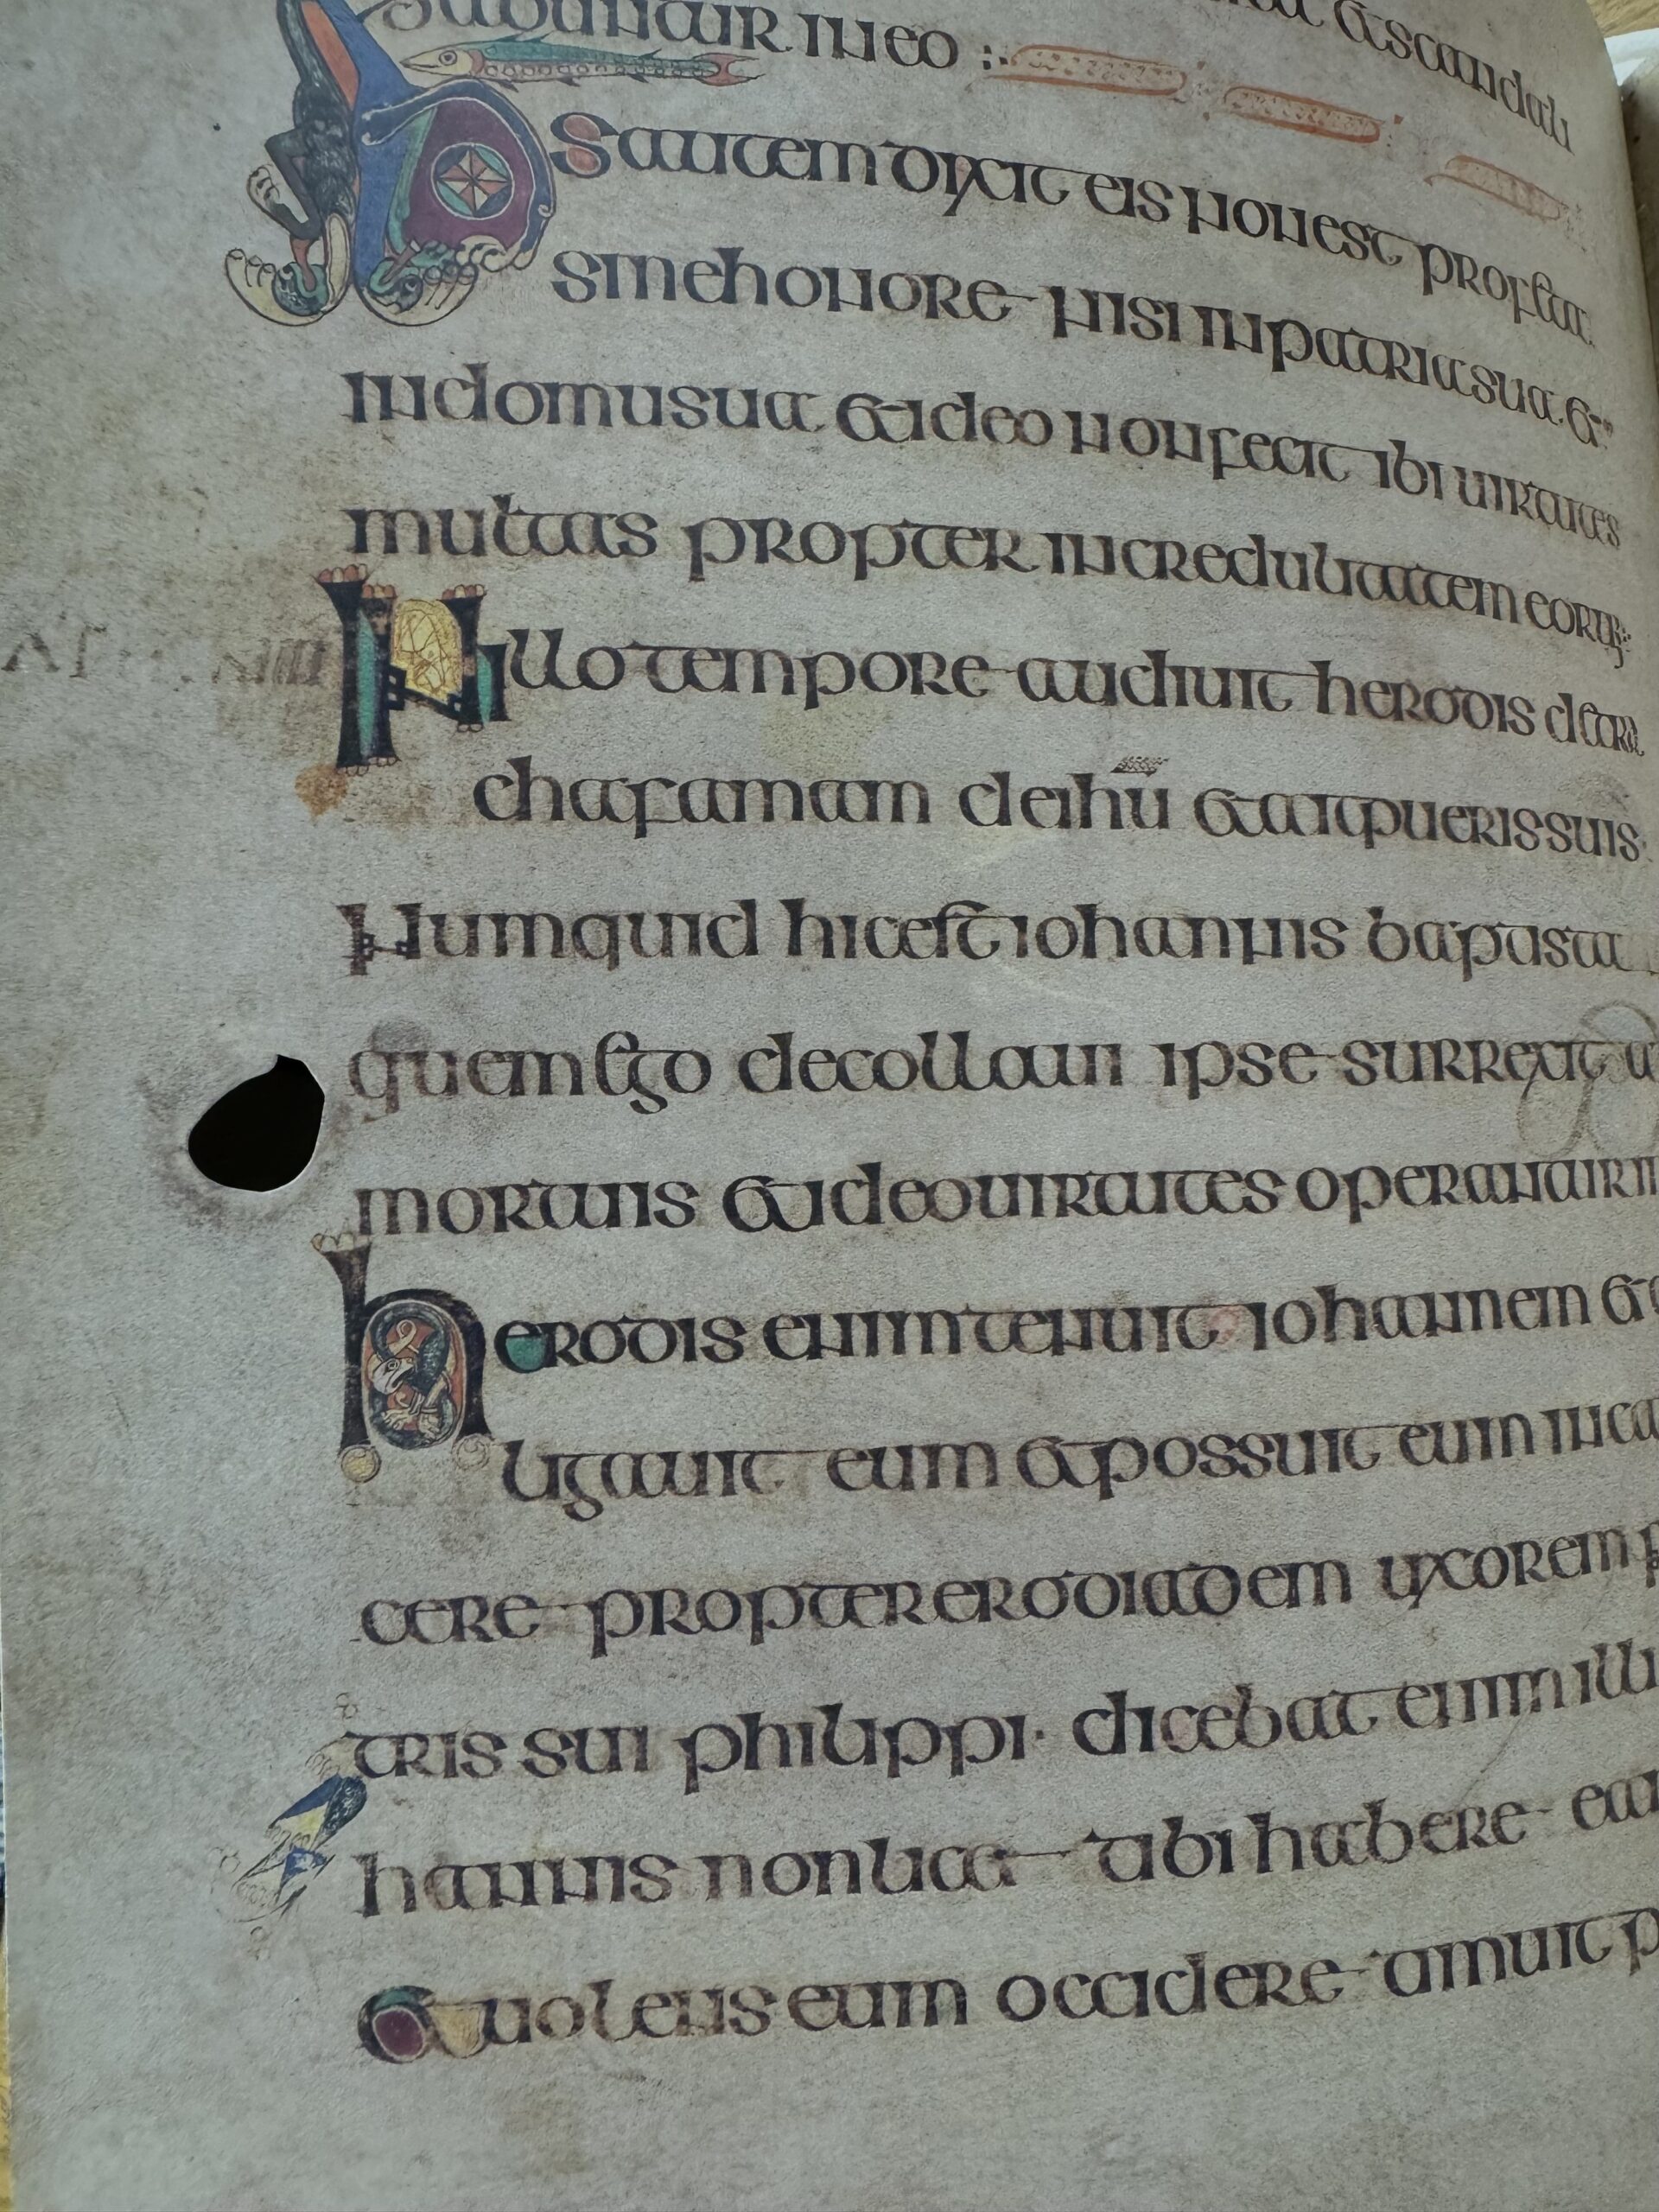 &scandali
zabuntur in eo
ihs autem dixit eis non est profeta
sine honore nisi in patria sua &
in domu sua & ideo non fecit ibi uirtutes
multas propter incredulitatem eorum
In illo tempore audiuit herodis &etra
cha famam de ihu & ait pueris suis
Numquid hic est iohannis baptista
quem ego decollaui ipse surrexit a
mortuis & ideo uirtutes operantur in
herodis enim tenuit iohannem &
ligauit eum & possuit eum in car
cere propter erodiadem uxorem
tris sui philippi · dicebat enim illi
hannis non licet tibi habere eam
& uolens eum occidere timuit